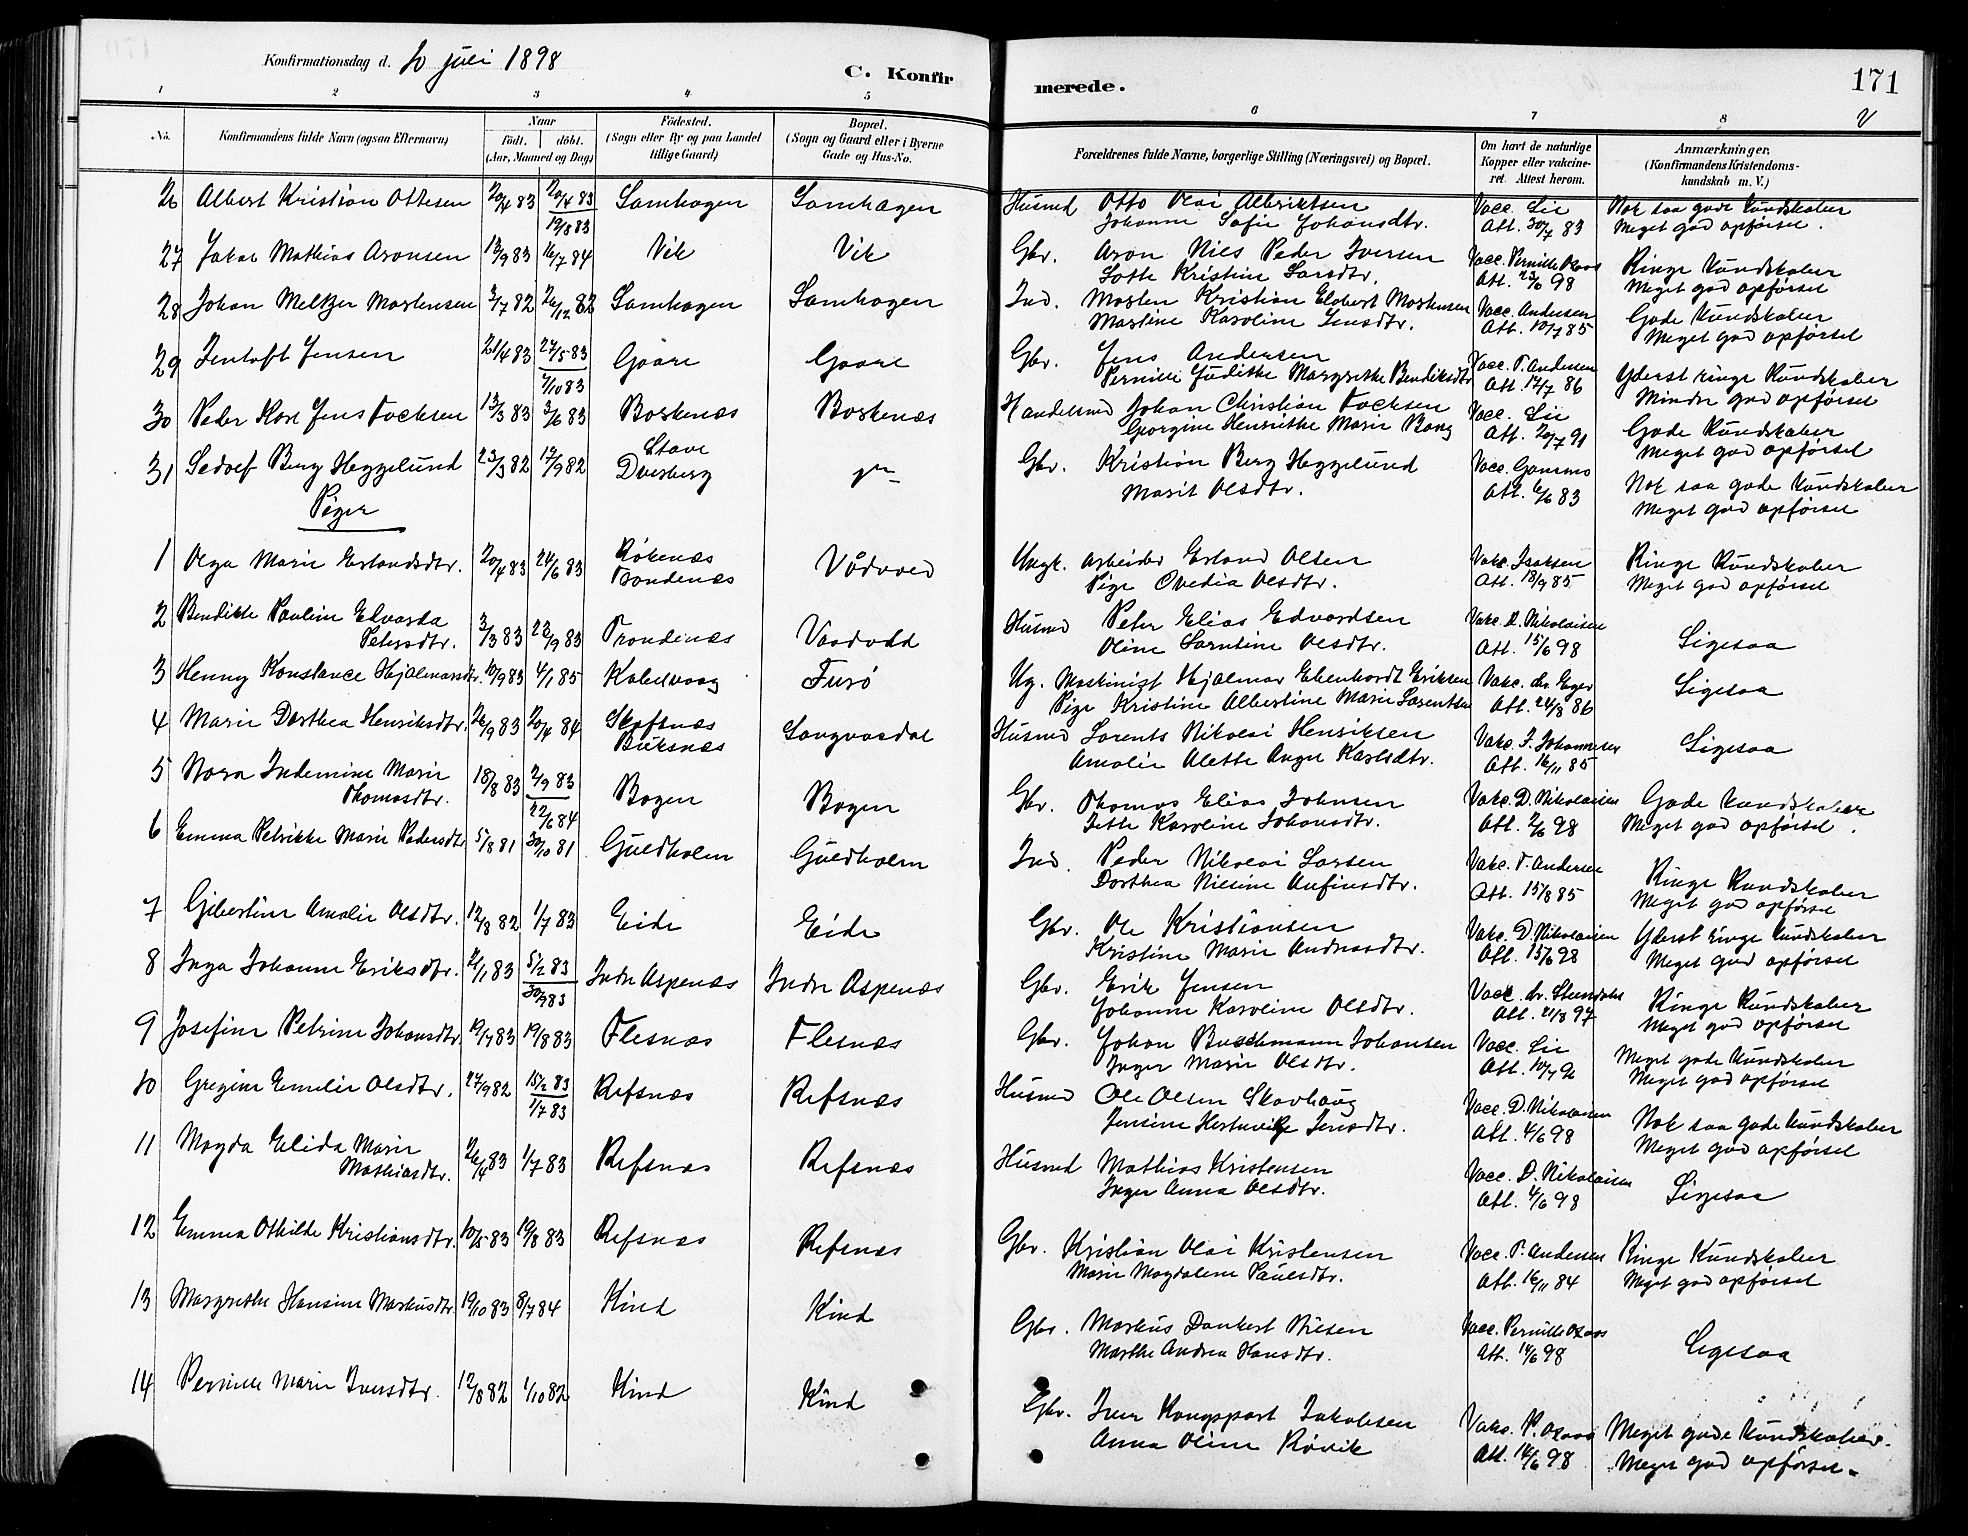 Konfirmationsdag d. 10 juli 1898
C. Konfir
merede.
171
1 2 3 4 5 6 7 8
No. Konfirmandens fulde Navn (ogsaa Efternavn) Naar födt. döbt. (Aar, Maaned og Dag) Födested. (Sogn eller By og paa Landet tillige Gaard) Bopæl. (Sogn og Gaard eller i Byerne Gade og Hus-No. Forældrenes fulde Navne, borgerlige Stilling (Næringsvei) og Bopæl. Om havt de naturlige Kopper eller vakcineret. Attest herom. Anmærkninger. (Konfirmandens Kristendomskundskab m. V.)
26 Albert Kristian Ottesen 20/4 83 20/4 83 Samhagen Samhagen Husmd Otto Olai Albriktsen Vacc. Lie Nok saa gode Kundskaber
19/8 83 Johanne Sofie Johansdtr. Att. 30/7 83 Meget god opførsel.
27 Jakob Mathias Aronsen 13/9 83 16/7 84 Vik Vik Gbr. Aron Niels Peder Iversen Vacc. Pernille Ringe Kundskaber
Lotte Kristine Larsdtr. Att. 23/6 98 Meget god opførsel
28 Johan Meltzer Mortensen 3/7 82 26/12 82 Samhagen Samhagen Ind. Morten Kristian Elobert Mortensen Vacc. Andersen Gode Kundskaber
Martine Karoline Jensdtr. Att. 10/7 85 Meget god opførsel
29 Zentoft Jensen 21/4 83 27/5 83 Gaare Gaare Gbr. Jens Andersen Vacc. T. Andersen Yderst ringe Kundskaber
7/10 83 Pernille Judithe Margrethe Bendiksdtr Att. 17/7 86 Mindre god opførsel
30 Peder Kore Jens Fochsen 13/3 83 3/6 83 Borkenæs Borkenæs Handelsmd Johan Christian Fochsen Vacc. Lie Gode Kundskaber
Georgine Henriette Marie Bang Att. 20/7 91 Meget god opførsel
31 Sedvef Berg Heggelund 23/3 82 17/9 82 Stave Gbr. Kristian Berg Heggelund Vacc. Nok saa gode Kundskaber
Dverberg Marit Olsdtr. Att. 6/6 83 Meget god opførsel
Piger
1 Olga Marie Erlandsdtr. 20/4 83 24/6 83 Røkenæs Vådvoed Ungk. arbeider Erland Olsen Vakc. Isaksen Ringe Kundskaber
Trondenæs Pige Ovedia Olsdtr. Att. 18/9 85 Meget god opførsel
2 Bendikte Pauline Edvarda
Petersdtr. 3/3 83 23/9 83 Trondenæs Vaadvodd Husmd Peter Elias Edvardsen Vakc. D. Nikolaisen Ligesaa
Oline Larntine Olsdtr. Att. 15/6 98
3 Henny Konstance Hjalmarsdtr. 10/9 83 4/1 85 Kabelvaag Furø Ug. Maskinist Hjalmar Ebenhardt Eriksen Vakc. dr. Eger Ligesaa
Pige Kristine Albertine Marie Larentsen Att. 24/8 86
4 Marie Dorthea Henriksdtr. 26/9 83 20/4 84 Skafsnæs Langvasdal Husmd Lorents Nikolai Henriksen Vakc. J. Johannesen Ligesaa
Buksnæs Amalie Alette Ange Karlsdtr. Att. 16/11 85
5 Nora Indemine Marie
Thomasdtr. 18/8 83 2/9 83 Bogen Bogen Gbr. Thomas Elias Johnsen Vakc. D. Nikolaisen Gode Kundskaber
22/6 84 Jette Karoline Johansdtr. Att. 2/6 98 Meget god opførsel.
6 Emma Petrikke Marie Pedersdtr 5/8 81 30/10 81 Guldholm Guldholm Ind. Peder Nikolai Larsen Vakc. T. Andersen Ringe Kundskaber
Dorthea Nicline Anfinsdtr. Att. 15/8 85 Meget god opførsel
7 Gibertine Amalie Olsdtr. 12/8 82 1/7 83 Eide Eide Gbr. Ole Kristiansen Vakc. D. Nikolaisen Yderst ringe Kundskaber
Kristine Marie Andreasdtr. Att. 15/6 98 Meget god opførsel
8 Inga Johanne Eriksdtr. 21/1 83 5/2 83 Indre Aspenæs Indre Aspenæs Gbr. Erik Jensen Vacc. dr. Ringe Kundskaber
30/9 83 Johanne Karoline Olsdtr. Att. 21/8 97 Meget god opførsel
9 Josefine Petrine Johansdtr 19/7 83 19/8 83 Flesnæs Flesnæs Gbr. Johan Buschmann Johansen Vacc. Lie Meget gode Kundskaber
Inger Marie Olsdtr. Att. 10/7 91 Meget god opførsel
10 Gregine Emelie Olsdtr. 27/9 82 15/2 83 Refsnæs Refsnæs Husmd Ole Olsen Skavhaug Vacc. D. Nikolaisen Nok saa gode Kundskaber
1/7 83 Jensine Hertevikke Jensdtr. Att. 4/6 98 Meget god opførsel
11 Magda Elida Marie
Mathiasdtr. 26/4 83 1/7 83 Refsnæs Refsnæs Husmd Mathias Kristensen Vacc. D. Nikolaisen Ligesaa
Inger Anna Olsdtr. Att. 4/6 98
12 Emma Othilde Kristiansdtr. 10/5 83 19/8 83 Refsnæs Refsnæs Gbr. Kristian Olai Kristensen Vacc. T. Andersen Ringe Kundskaber
Marie Magdalene Paulsdtr. Att. 16/11 84 Meget god opførsel
13 Margrethe Hansine Markusdtr 19/10 83 8/7 84 Kind Kind Gbr. Markus Dankert Nilsen Vacc. Pernille Ligesaa
Marthe Andrea Hansdtr. Att. 14/6 98
14 Pernille Marie Iversdtr. 12/8 82 1/10 82 Kind Kind Gbr. Iver Kongspart Jakobsen Vakc. P. Meget gode Kundskaber.
Anna Oline Røvik Att. 14/6 98 Meget god opførsel.